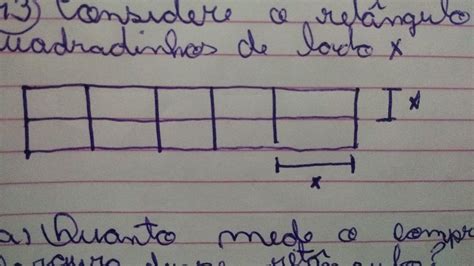 13) Considere o retângulo
quadradinhos de lado x
x
x
a) Quanto mede o compr